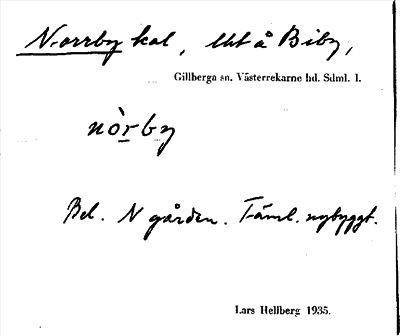 Norrby kal, lht å Biby,
Gillberga sn. Västerrekarne hd. Sdml. l.
nòrby
Bel. N gården. Täml. nybyggt.
Lars Hellberg 1935.